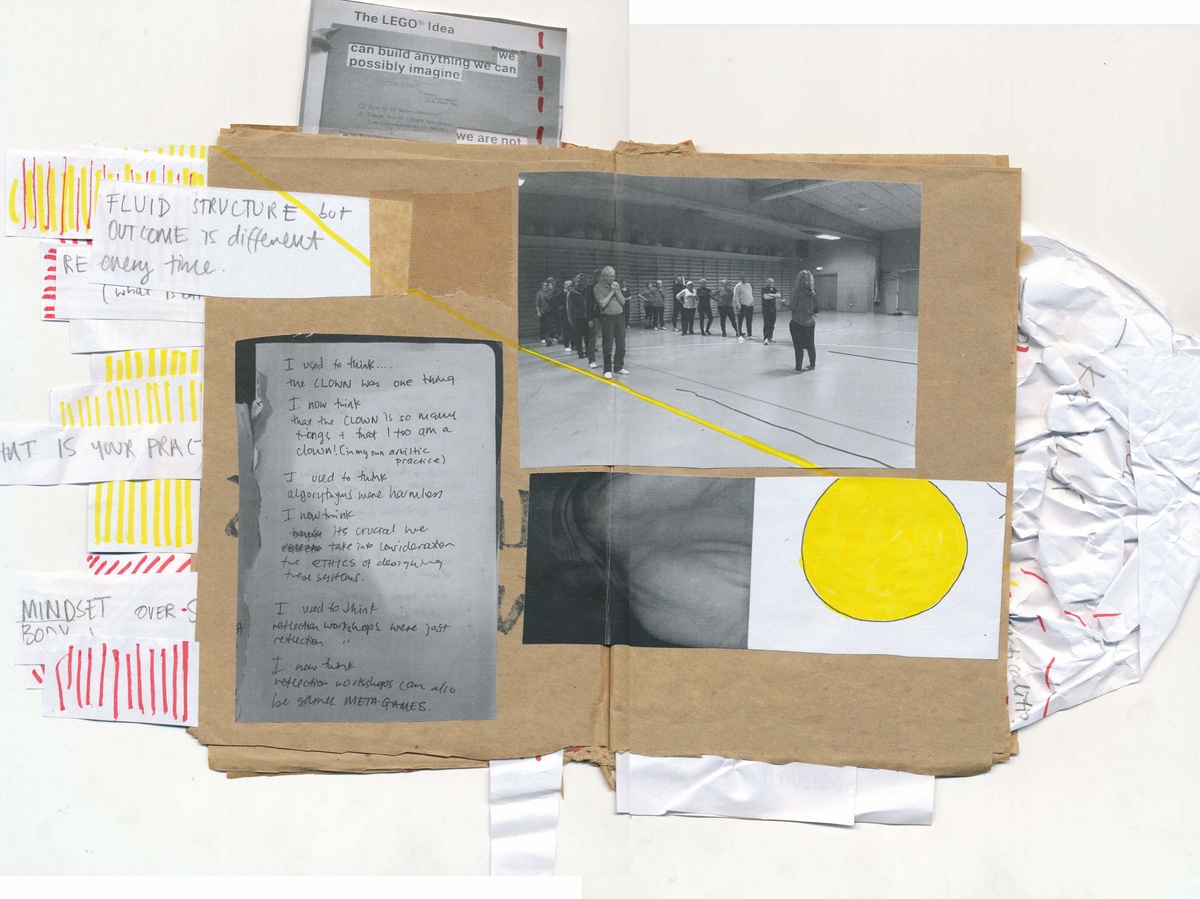 The LEGO® Idea
we
can build anything we can
possibly imagine
we are not
FLUID STRUCTURE but
OUTCOME IS different
RE every time.
(what is
I used to think....
the CLOWN was one thing
I now think
that the CLOWN is so many
things + that I too am a
clown! (in my own artistic
practice)
I used to think
algorythyms were harmless
I now think
its crucial we
take into consideration
the ETHICS of designing
these systems.
I used to think
reflection workshops were just
reflection "
I now think
reflection workshops can also
be games META GAMES.
HAT IS YOUR PRACT
MINDSET OVER
BODY